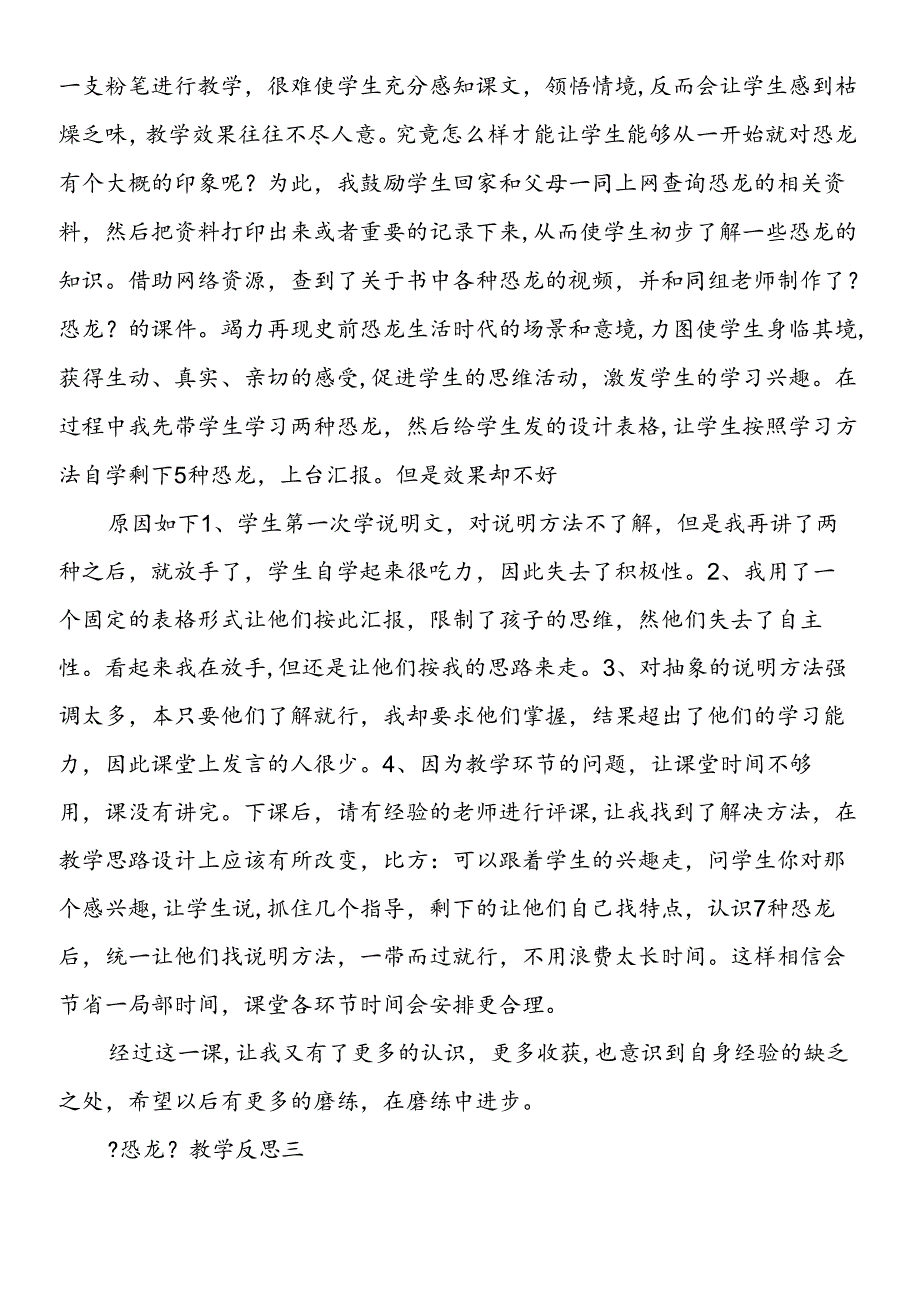 一支粉笔进行教学，很难使学生充分感知课文，领悟情境,反而会让学生感到枯
燥乏味,教学效果往往不尽人意。究竟怎么样才能让学生能够从一开始就对恐龙
有个大概的印象呢？为此，我鼓励学生回家和父母一同上网查询恐龙的相关资
料，然后把资料打印出来或者重要的记录下来,从而使学生初步了解一些恐龙的
知识。借助网络资源，查到了关于书中各种恐龙的视频，并和同组老师制作了？
恐龙？的课件。竭力再现史前恐龙生活时代的场景和意境,力图使学生身临其境,
获得生动、真实、亲切的感受,促进学生的思维活动，激发学生的学习兴趣。在
过程中我先带学生学习两种恐龙，然后给学生发的设计表格,让学生按照学习方
法自学剩下5种恐龙，上台汇报。但是效果却不好
原因如下1、学生第一次学说明文，对说明方法不了解，但是我再讲了两
种之后，就放手了，学生自学起来很吃力，因此失去了积极性。2、我用了一
个固定的表格形式让他们按此汇报，限制了孩子的思维，然他们失去了自主
性。看起来我在放手,但还是让他们按我的思路来走。3、对抽象的说明方法强
调太多，本只要他们了解就行，我却要求他们掌握，结果超出了他们的学习能
力，因此课堂上发言的人很少。4、因为教学环节的问题，让课堂时间不够
用，课没有讲完。下课后，请有经验的老师进行评课,让我找到了解决方法，在
教学思路设计上应该有所改变，比方：可以跟着学生的兴趣走，问学生你对那
个感兴趣,让学生说,抓住几个指导，剩下的让他们自己找特点，认识7种恐龙
后，统一让他们找说明方法，一带而过就行，不用浪费太长时间。这样相信会
节省一局部时间，课堂各环节时间会安排更合理。
经过这一课,让我又有了更多的认识，更多收获,也意识到自身经验的缺乏
之处，希望以后有更多的磨练，在磨练中进步。
?恐龙？教学反思三